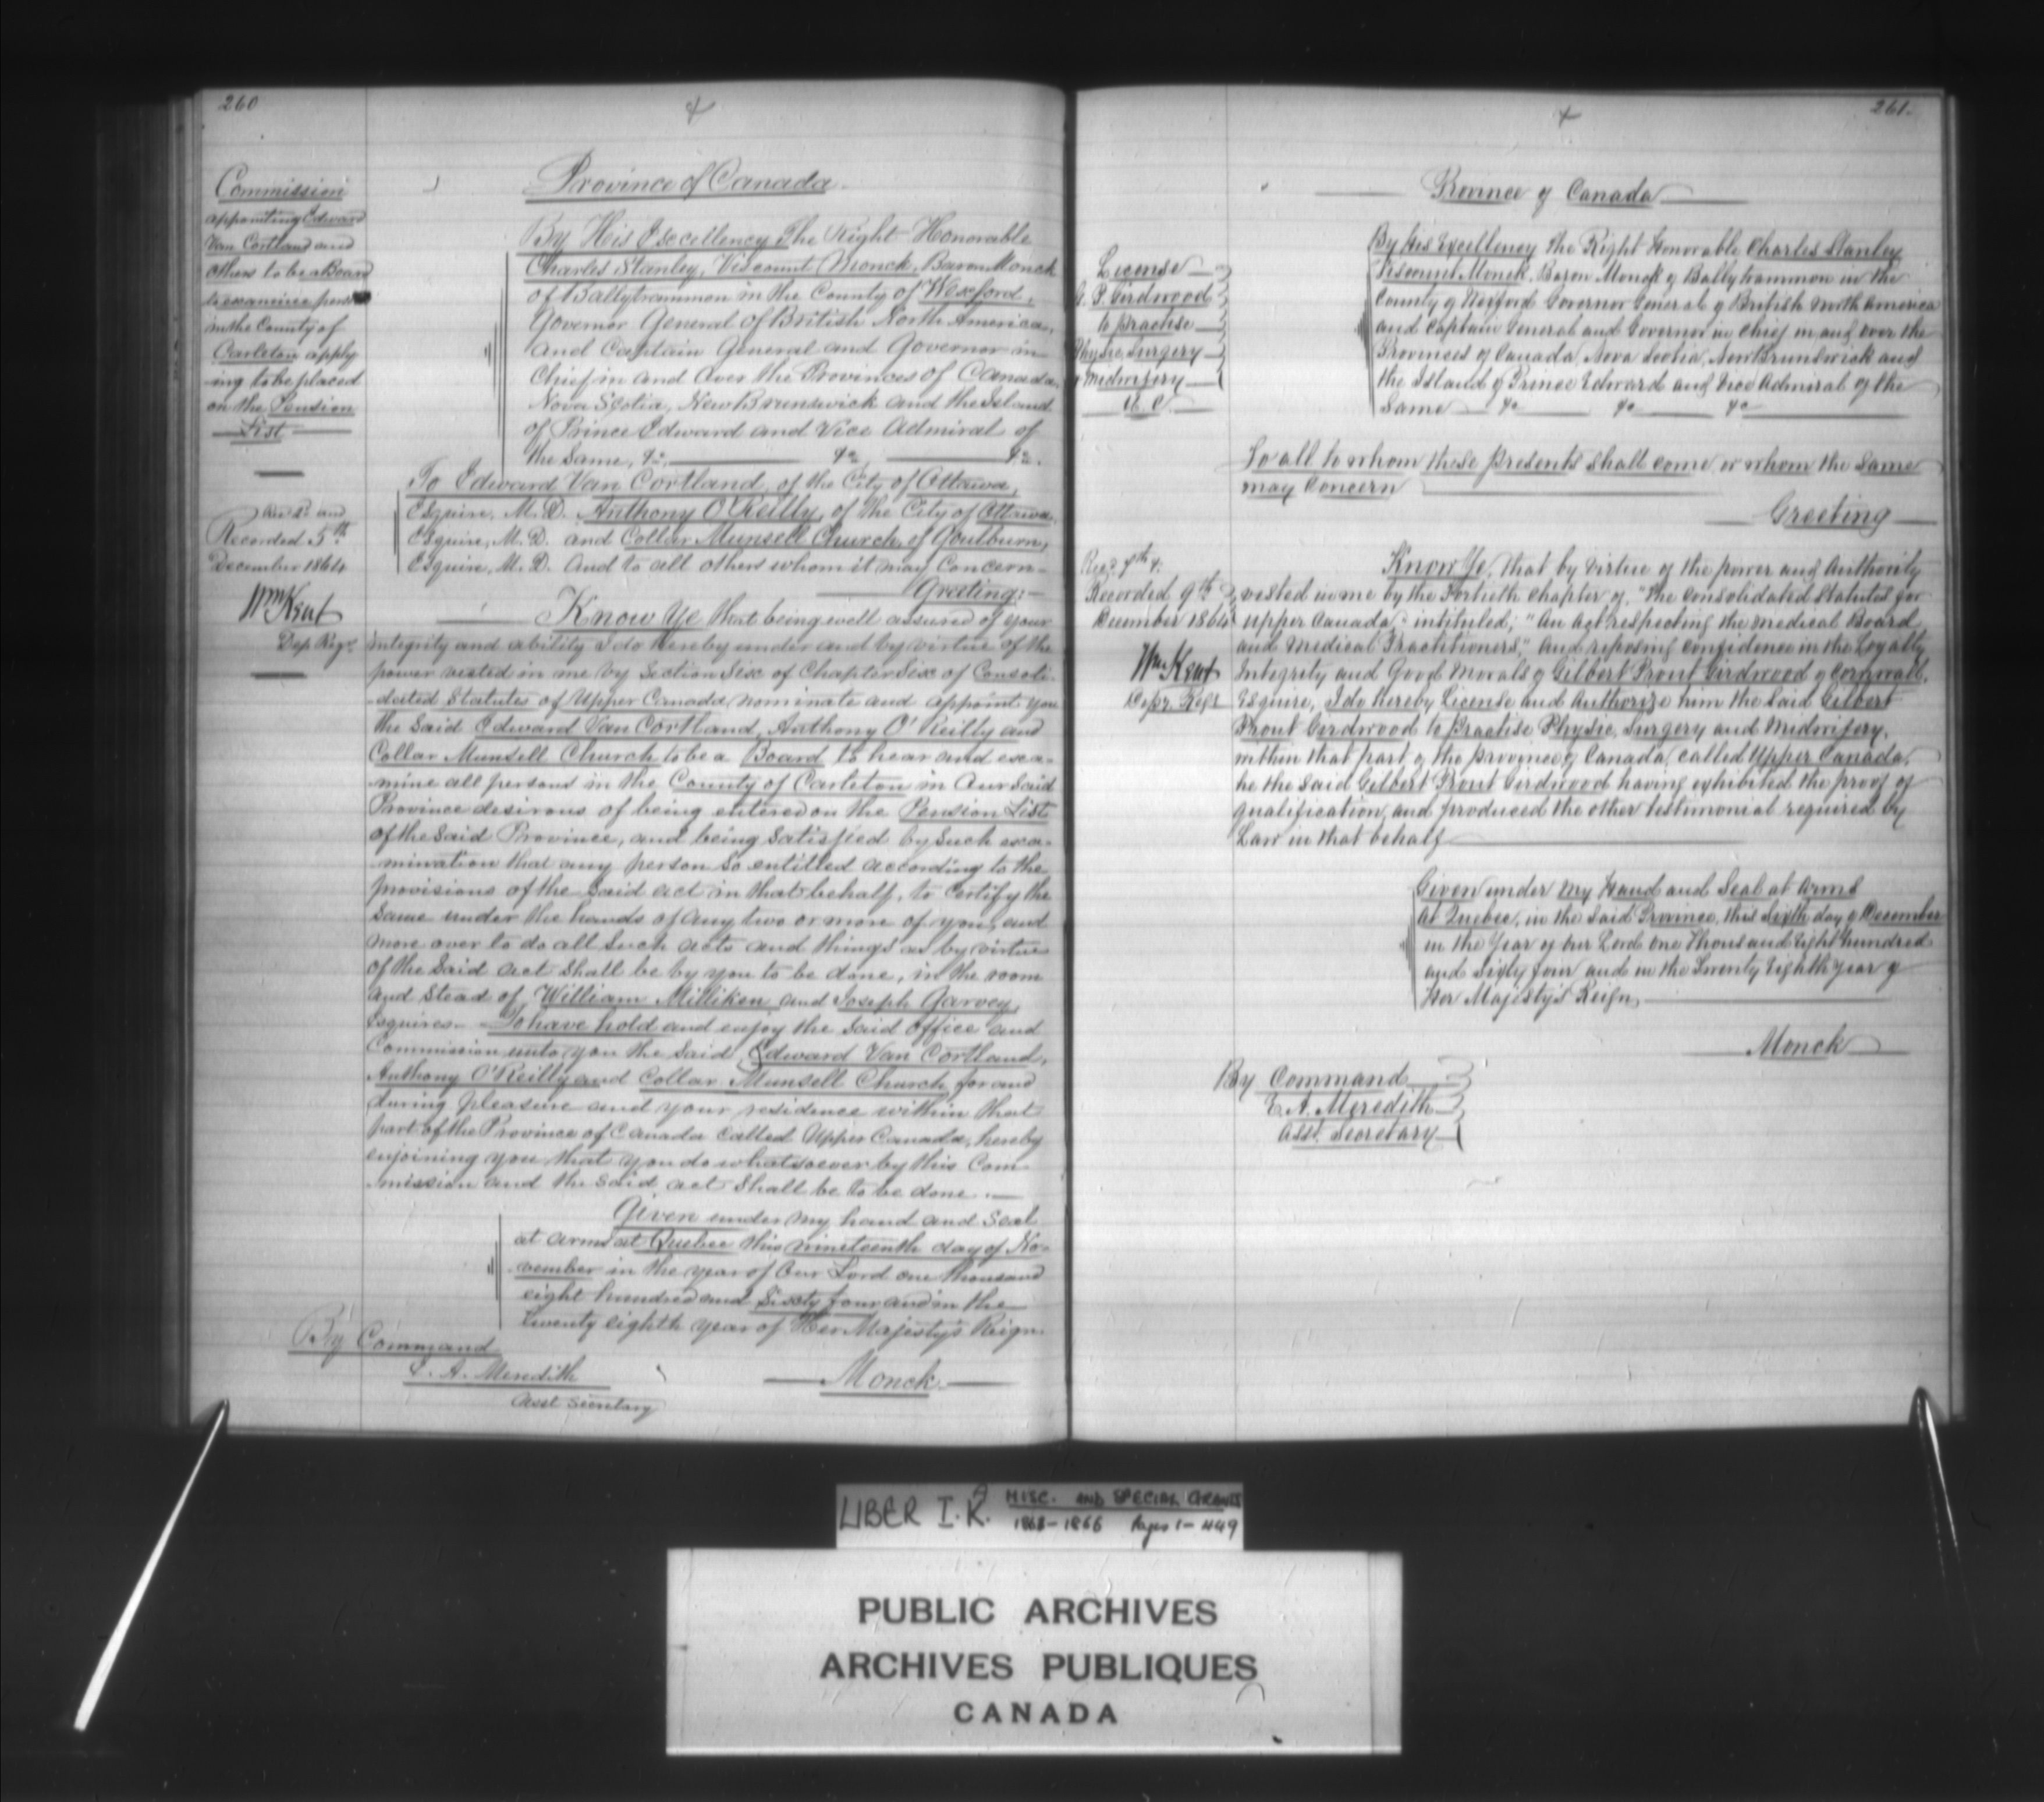 260
Commission
appointing Edward
Van Cortland and
others to be a Board
to examine persons
in the County of
Carleton apply
-ing to be placed
on the Pension
List
and
Recorded 5th
December 1864
Wm Kent
Dep Regr
Province of Canada
By His Excellency The Right Honorable
Charles Stanley, Viscount Monck, Baron Monck
of Ballytrammon in the County of Wexford,
Governor General of British North America,
and Captain General and Governor in
Chief in and Over the Provinces of Canada,
Nova Scotia, New Brunswick and the Island
of Prince Edward and Vice Admiral of
the Same, &c. &c. &c.
To Edward Van Cortland, of the City of Ottawa,
Esquire, M. D. Anthony O'Reilly, of the City of Ottawa,
Esquire, M. D. and Collar Munsell Church, of Goulburn,
Esquire, M. D. And to all others whom it may Concern-
Greeting:-
Know Ye that being well assured of your
integrity and ability I do hereby under and by virtue of the
power vested in me by Section Six of Chapter Six of Consoli-
-dated Statutes of Upper Canada nominate and appoint you
the said Edward Van Cortland, Anthony O'Reilly and
Collar Munsell Church to be a Board to hear and exa-
-mine all persons in the County of Carleton in Our Said
Province desirous of being entered on the Pension List
of the Said Province, and being satisfied by such exa-
-mination that any person so entitled according to the
provisions of the said act in that behalf, to Certify the
same under the hands of any two or more of you, and
more over to do all such acts and things as by virtue
of the said act shall be by you to be done, in the room
and stead of William Milliken and Joseph Garvey,
Esquires. To have hold and enjoy the said office and
Commission unto you the said Edward Van Cortland,
Anthony O'Reilly and Collar Munsell Church for and
during pleasure and your residence within that
part of the Province of Canada Called Upper Canada, hereby
enjoining you that you do whatsoever by this Com-
-mission and the said act shall be to be done.
Given under my hand and Seal
at arms at Quebec this nineteenth day of No-
-vember in the year of Our Lord one thousand
eight hundred and Sixty four and in the
twenty eighth year of Her Majesty's Reign.
By Command
E. A. Meredith
Asst Secretary
Monck
261.
License
G. P. Girdwood
to practise
Physic, Surgery
& Midwifery
U. C.
Recorded 9th
December 1864
Wm Kent
Depy Regr
Province of Canada
By His Excellency the Right Honorable Charles Stanley
Viscount Monck, Baron Monck of Ballytrammon in the
County of Wexford Governor General of British North America
and Captain General and Governor in Chief in and over the
Provinces of Canada Nova Scotia, New Brunswick and
the Island of Prince Edward and Vice Admiral of the
Same &c &c &c
To all to whom these presents shall come or whom the same
may Concern
Greeting
Know Ye, that by virtue of the power and Authority
vested in me by the Fortieth Chapter of, "The Consolidated Statutes for
Upper Canada" intituled; "An Act respecting the Medical Board
and Medical Practitioners," and reposing confidence in the Loyalty
Integrity and Good Morals of Gilbert Prout Girdwood of Cornwall,
Esquire, I do hereby License and Authorize him the said Gilbert
Prout Girdwood to practise Physic, Surgery and Midwifery,
within that part of the province of Canada, called Upper Canada,
he the said Gilbert Prout Girdwood having exhibited the proof of
qualification, and produced the other testimonial required by
Law in that behalf
Given under my Hand and Seal at Arms
At Quebec, in the said Province, this Sixth day of December
in the Year of our Lord one Thousand Eight hundred
and Sixty four and in the Twenty Eighth Year of
Her Majesty's Reign,
Monck
By Command
E. A. Meredith
Asst. Secretary
LIBER I.K.A MISC. AND SPECIAL GRANTS
1863-1866 Pages 1-449
PUBLIC ARCHIVES
ARCHIVES PUBLIQUES
CANADA